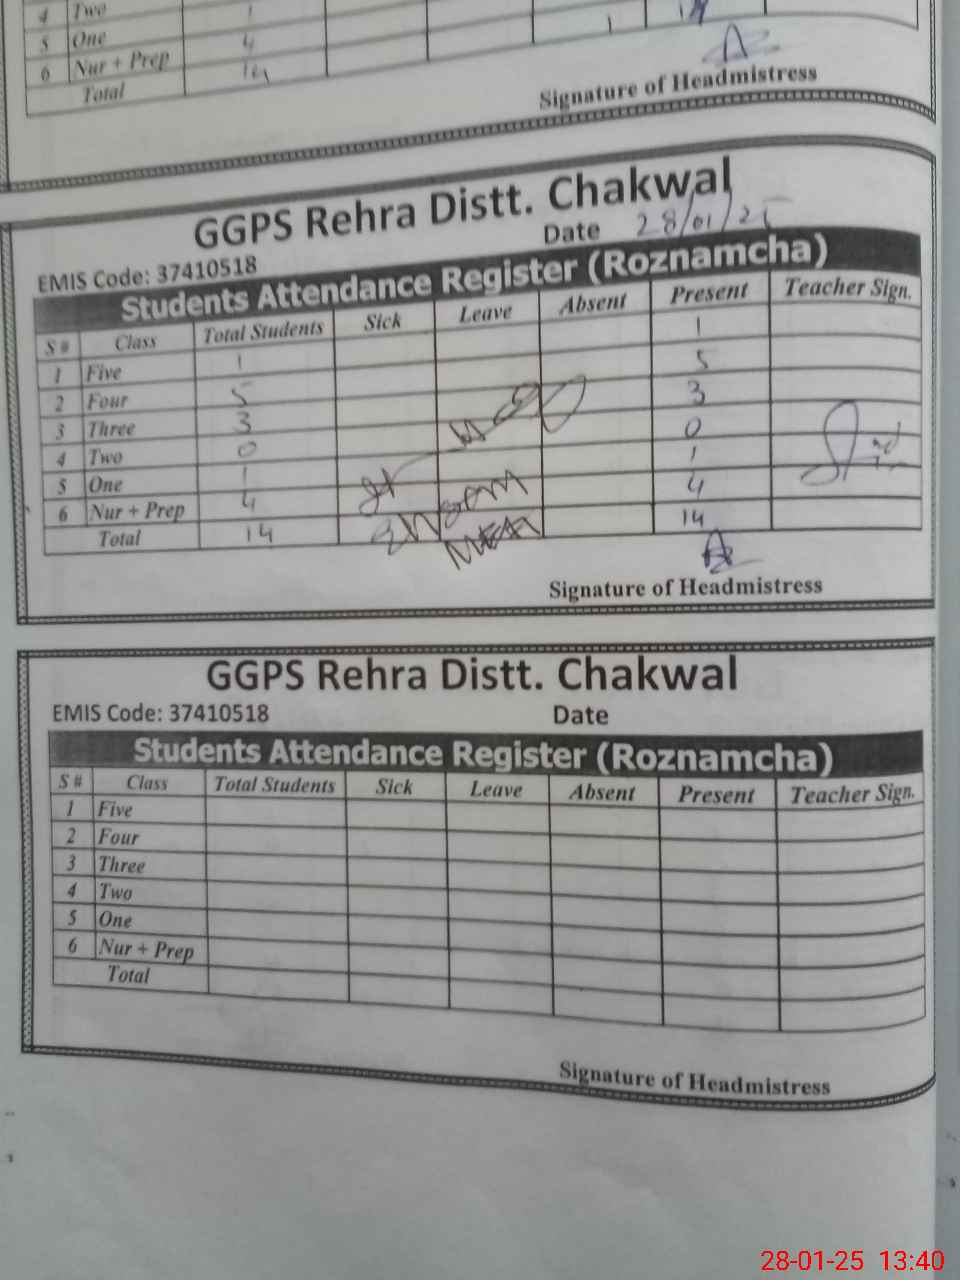 4 Two 1
5 One 4 1 14
6 Nur + Prep 14
Total
Signature of Headmistress
GGPS Rehra Distt. Chakwal
EMIS Code: 37410518 Date 28/01/25
Students Attendance Register (Roznamcha)
S # Class Total Students Sick Leave Absent Present Teacher Sign.
1 Five 1 1
2 Four 5 5
3 Three 3 3
4 Two 0 0
5 One 1 1
6 Nur + Prep 4 4
Total 14 14
MEA
Signature of Headmistress
GGPS Rehra Distt. Chakwal
EMIS Code: 37410518 Date
Students Attendance Register (Roznamcha)
S # Class Total Students Sick Leave Absent Present Teacher Sign.
1 Five
2 Four
3 Three
4 Two
5 One
6 Nur + Prep
Total
Signature of Headmistress
28-01-25 13:40